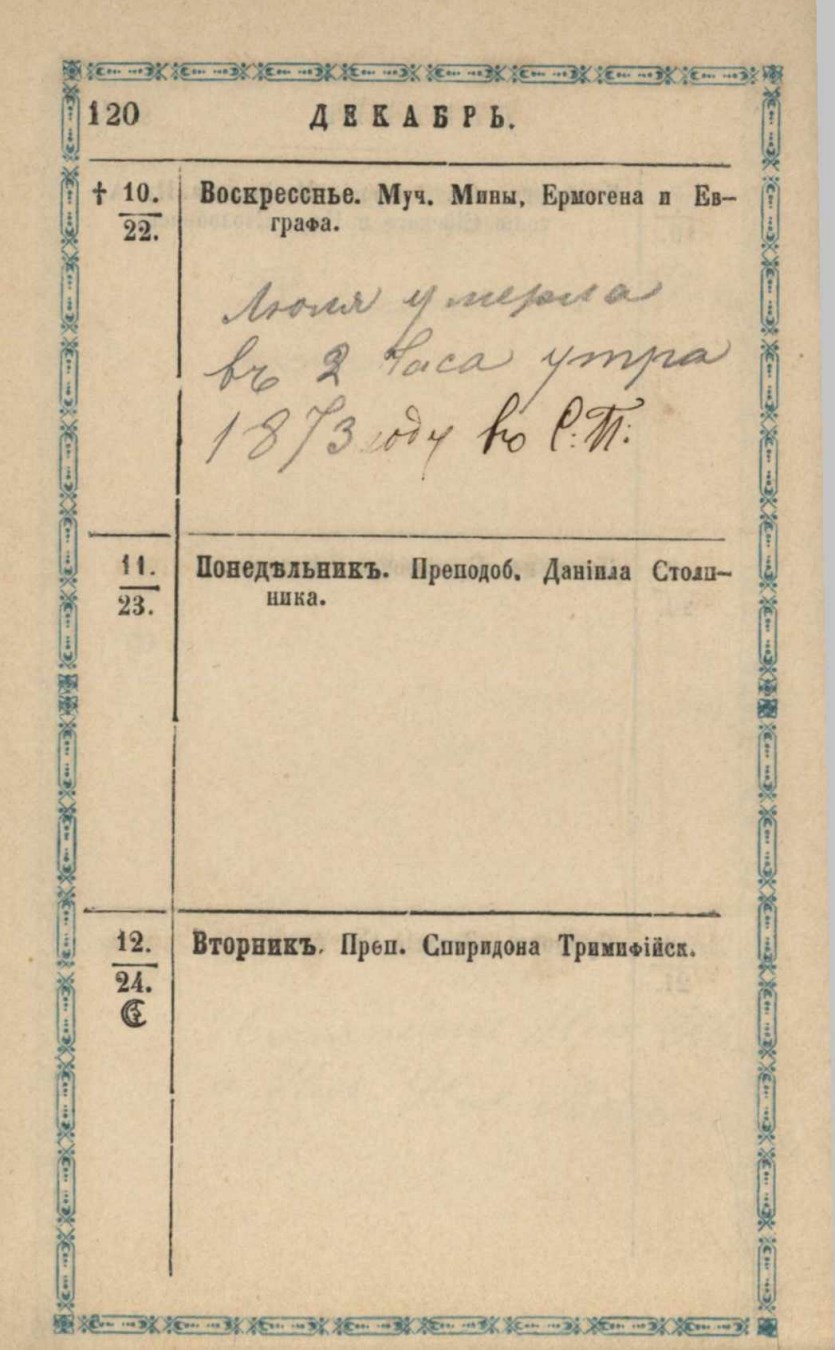 120 ДЕКАБРЬ.
† 10. Воскресснье. Муч. Мины, Ермогена и Ев-
22. графа.
Люля умерла
въ 2 часа утра
1873 году въ С: П:
11. Понедѣльникъ. Преподоб. Даніила Столп-
23. ника.
12. Вторникъ. Преп. Спиридона Тримифійск.
24.